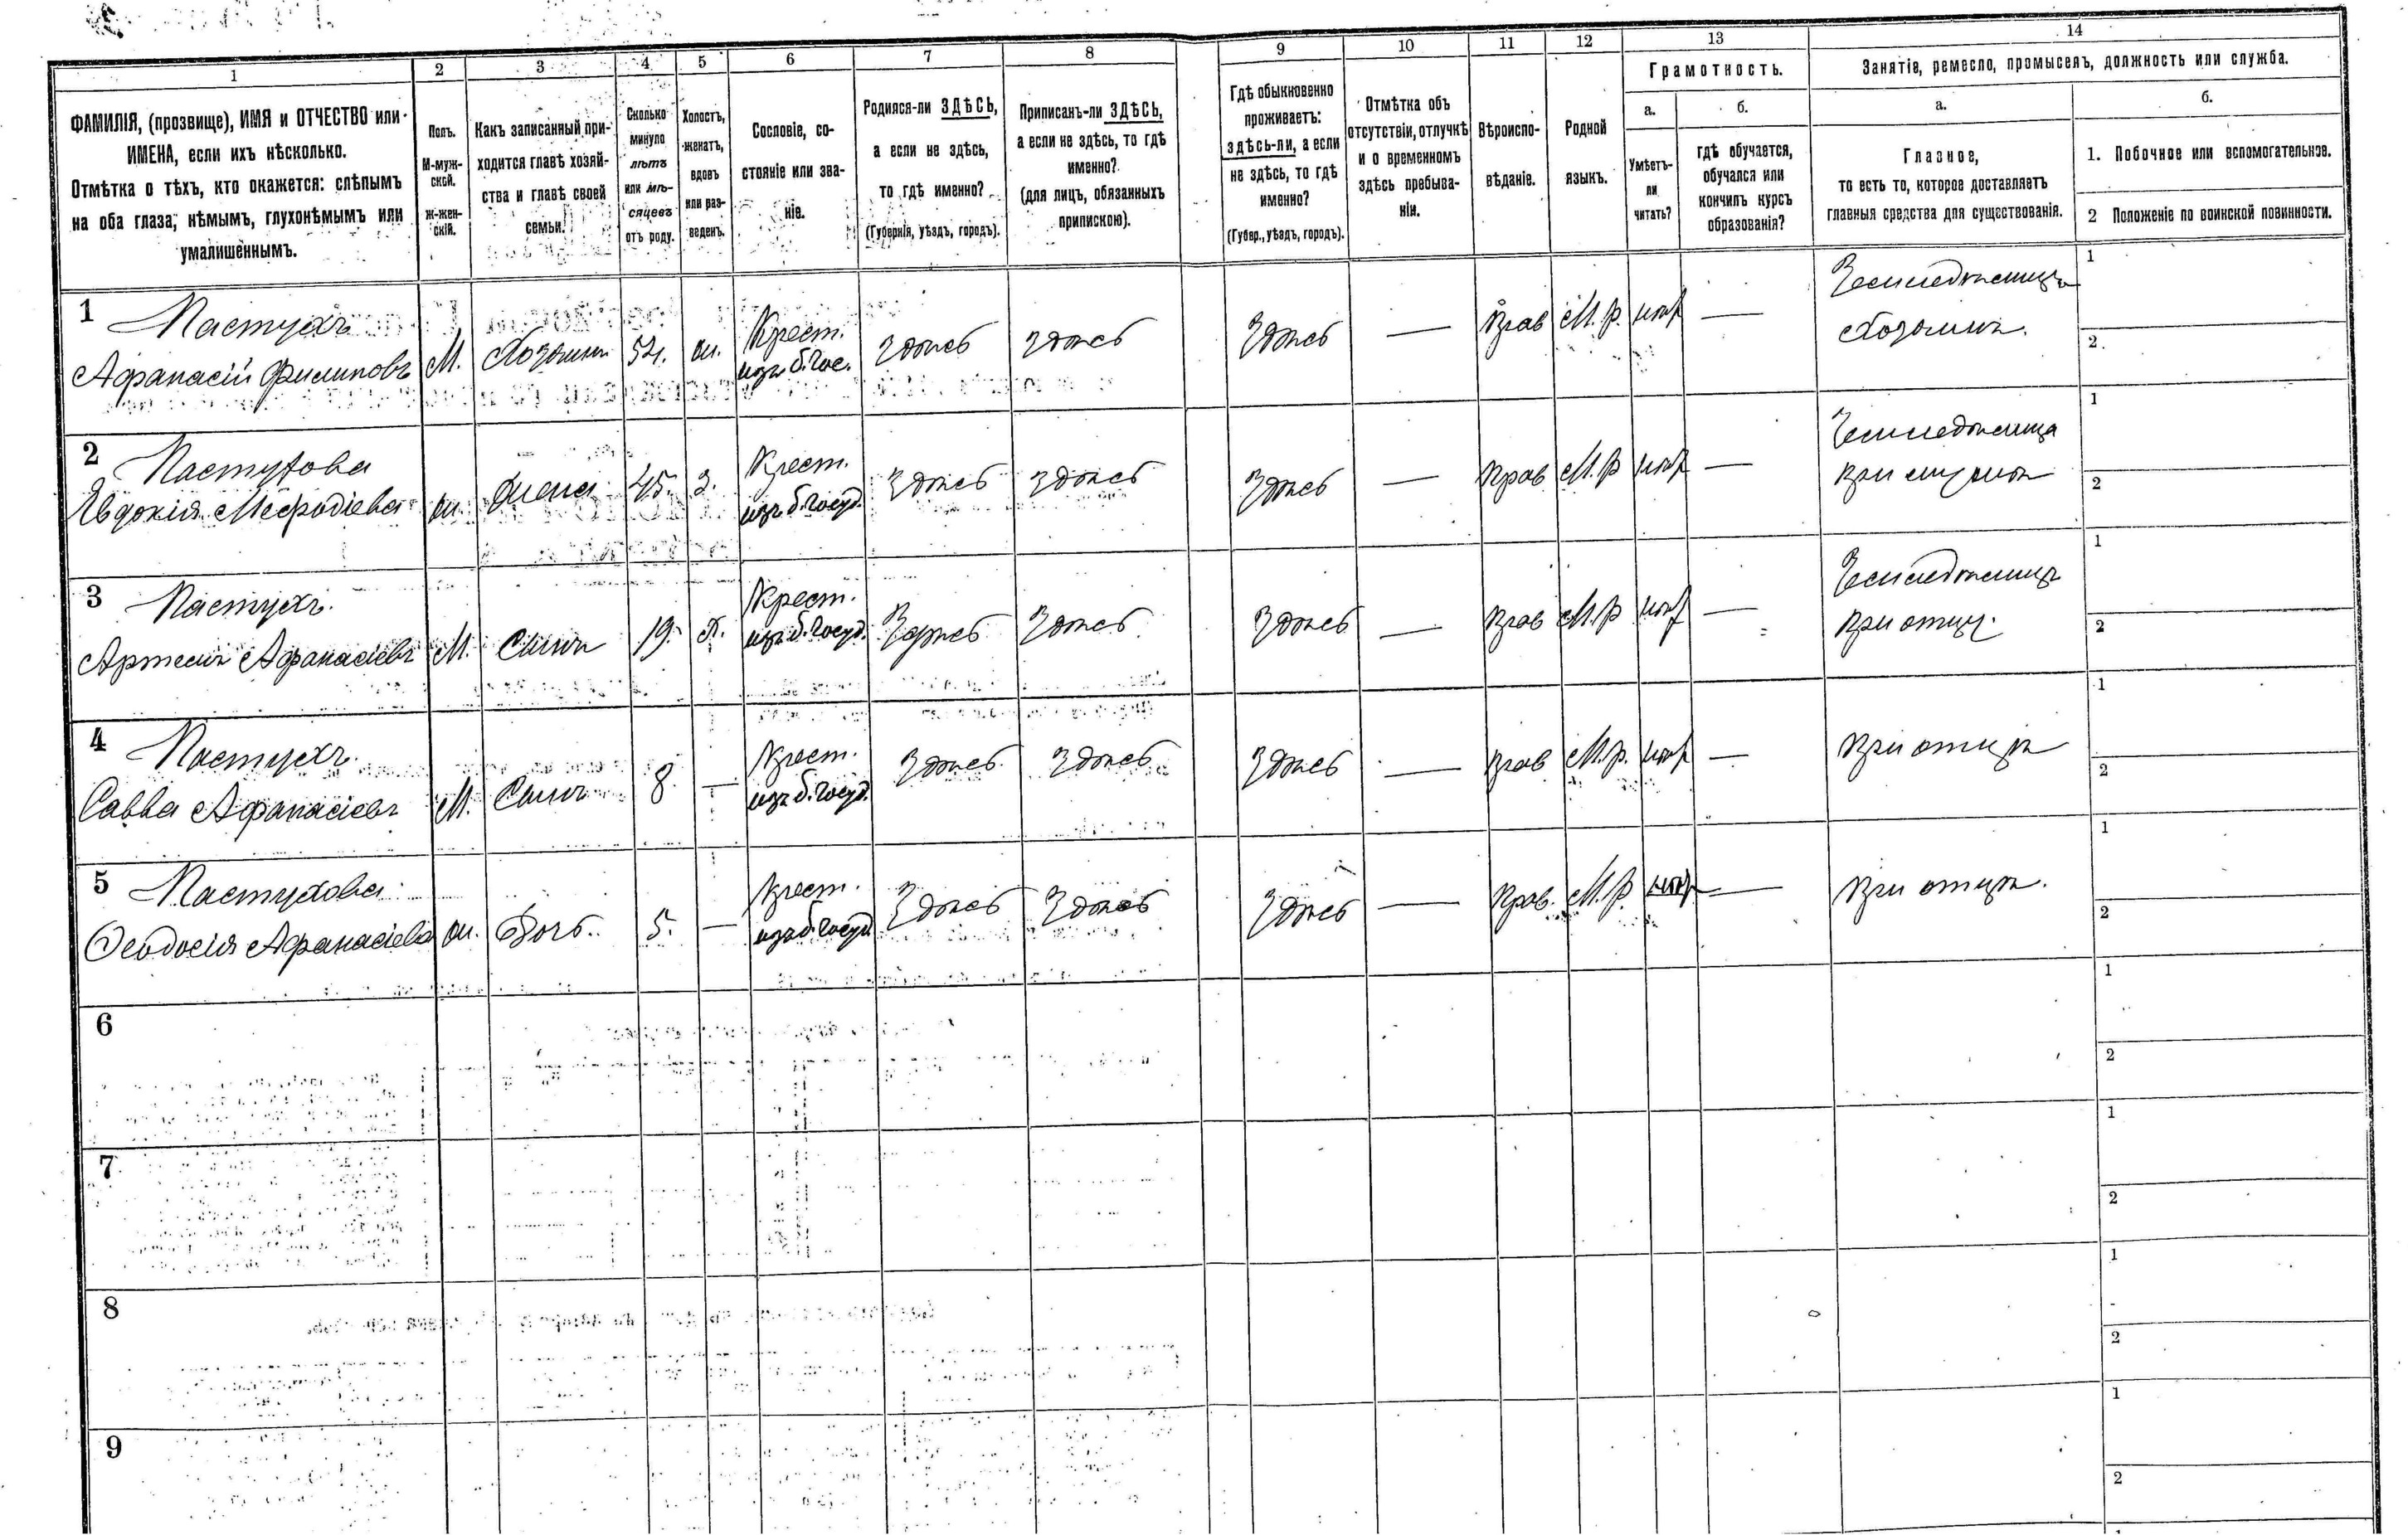 1 2 3 4 5 6 7 8 9 10 11 12 13 14
ФАМИЛІЯ, (прозвище), ИМЯ и ОТЧЕСТВО или
ИМЕНА, если ихъ нѣсколько.
Отмѣтка о тѣхъ, кто окажется: слѣпымъ
на оба глаза, нѣмымъ, глухонѣмымъ или
умалишеннымъ.
Полъ.
М-муж-
ской.
Ж-жен-
скій.
Какъ записанный при-
ходится главѣ хозяй-
ства и главѣ своей
семьи.
Сколько
минуло
лѣтъ
или мѣ-
сяцевъ
отъ роду.
Холостъ,
женатъ,
вдовъ
или раз-
веденъ.
Сословіе, со-
стояніе или зва-
ніе.
Родился-ли ЗДѢСЬ,
а если не здѣсь,
то гдѣ именно?
(Губернія, уѣздъ, городъ).
Приписанъ-ли ЗДѢСЬ,
а если не здѣсь, то гдѣ
именно?
(для лицъ, обязанныхъ
припискою).
Гдѣ обыкновенно
проживаетъ:
здѣсь-ли, а если
не здѣсь, то гдѣ
именно?
(Губер., уѣздъ, городъ).
Отмѣтка объ
отсутствіи, отлучкѣ
и о временномъ
здѣсь пребыва-
ніи.
Вѣроиспо-
вѣданіе.
Родной
языкъ.
Грамотность.
а.
Умѣетъ-
ли
читать?
б.
гдѣ обучается,
обучался или
кончилъ курсъ
образованія?
Занятіе, ремесло, промыселъ, должность или служба.
а.
Главное,
то есть то, которое доставляетъ
главныя средства для существованія.
б.
1. Побочное или вспомогательное.
2 Положеніе по воинской повинности.
1 Пастухъ
Афанасій Филиповъ М. Хозяинъ 54. ж. Крест.
изъ б. гос. Здѣсь Здѣсь Здѣсь — Прав М. р. нѣт — Земледѣлецъ
Хозяинъ. 1
2
2 Пастухова
Евдокія Мефодіева ж. Жена 45. З. Крест.
изъ б. госуд. Здѣсь Здѣсь Здѣсь — Прав М. р нѣт —
при мужѣ 1
2
3 Пастухъ.
Артемъ Афанасіевъ М. Сынъ 19. Х. Крест.
изъ б. госуд. Здѣсь Здѣсь Здѣсь — Прав М. р нѣт — Земледѣлецъ
при отцѣ. 1
2
4 Пастухъ.
Савва Афанасіевъ М. Сынъ 8. — Крест.
изъ б. госуд. Здѣсь Здѣсь Здѣсь — Прав М. р. нѣт — при отцѣ 1
2
5 Пастухова
Ѳеодосія Афанасіева ж. Дочь. 5. — Крест.
изъ б. госуд Здѣсь Здѣсь Здѣсь — Прав. М. р. нѣт — при отцѣ. 1
2
6 1
2
7 1
2
8 1
2
9 1
2